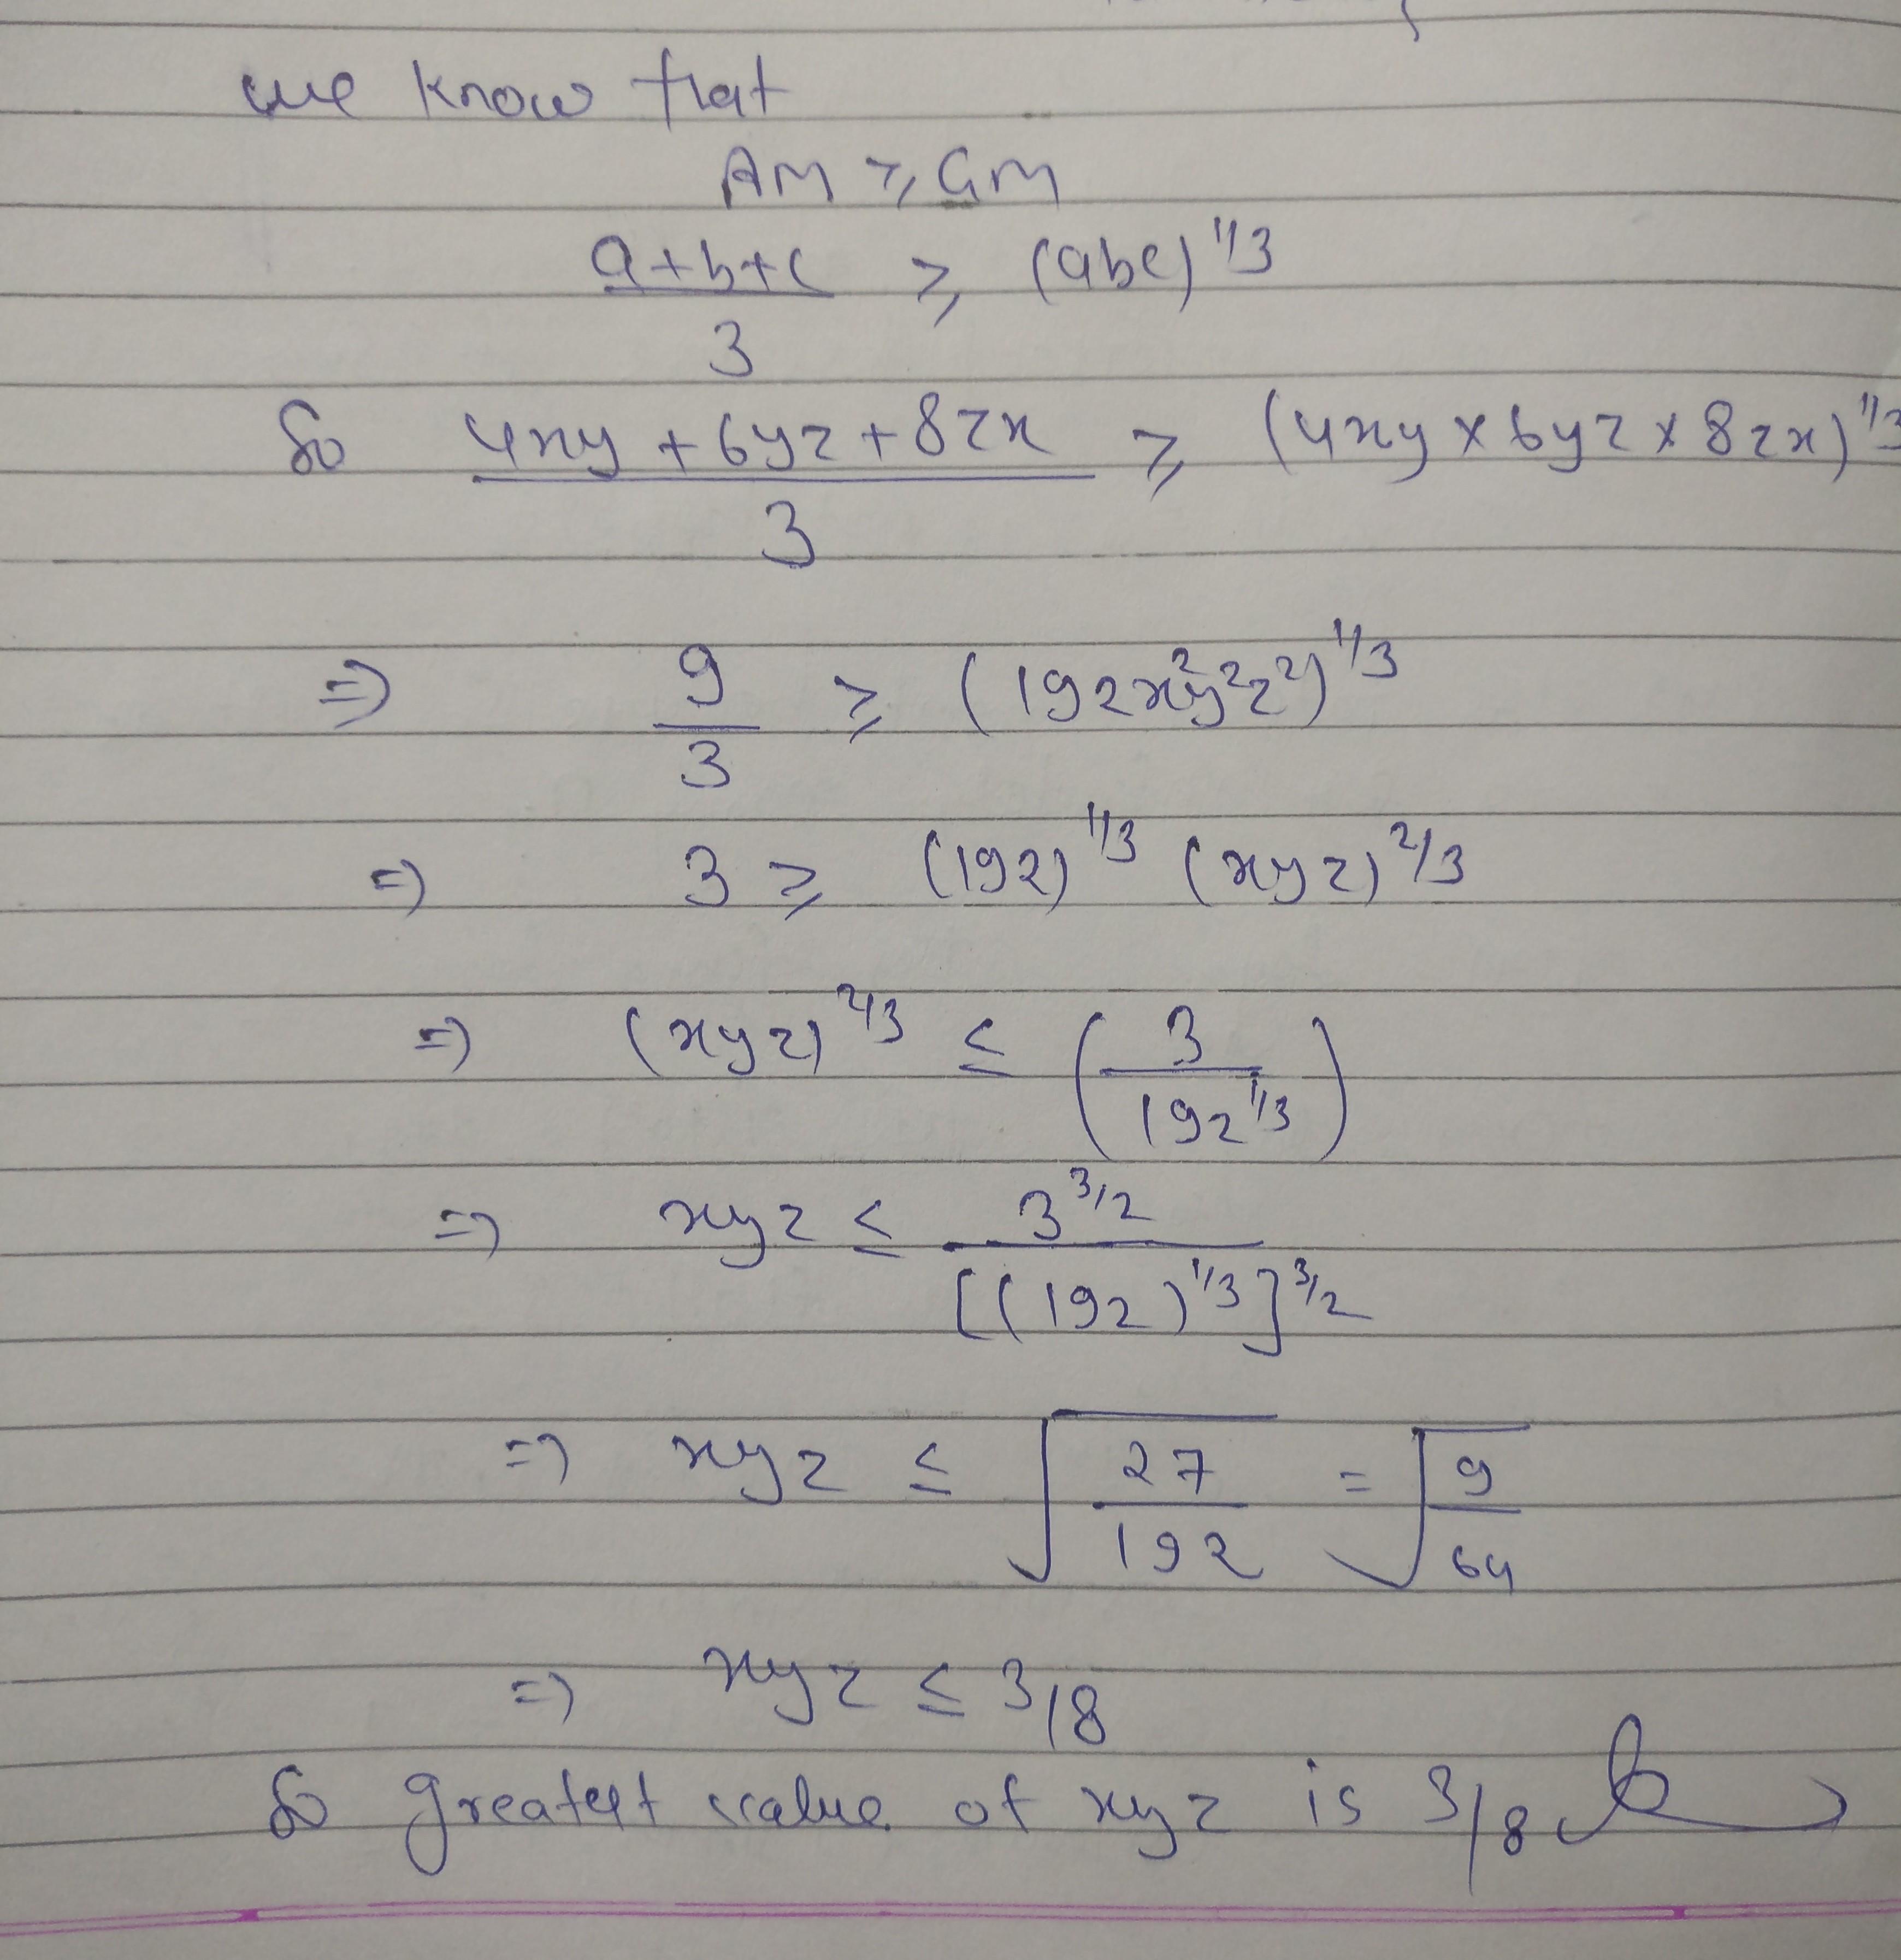 we know that
AM ≥ GM
a+b+c / 3 ≥ (abc)^1/3
So 4xy + 6yz + 8zx / 3 ≥ (4xy × 6yz × 8zx)^1/3
⇒ 9/3 ≥ (192x²y²z²)^1/3
⇒ 3 ≥ (192)^1/3 (xyz)^2/3
⇒ (xyz)^2/3 ≤ (3 / 192^1/3)
⇒ xyz ≤ 3^3/2 / [(192)^1/3]^3/2
⇒ xyz ≤ √(27/192) = √(9/64)
⇒ xyz ≤ 3/8
So greatest value of xyz is 3/8